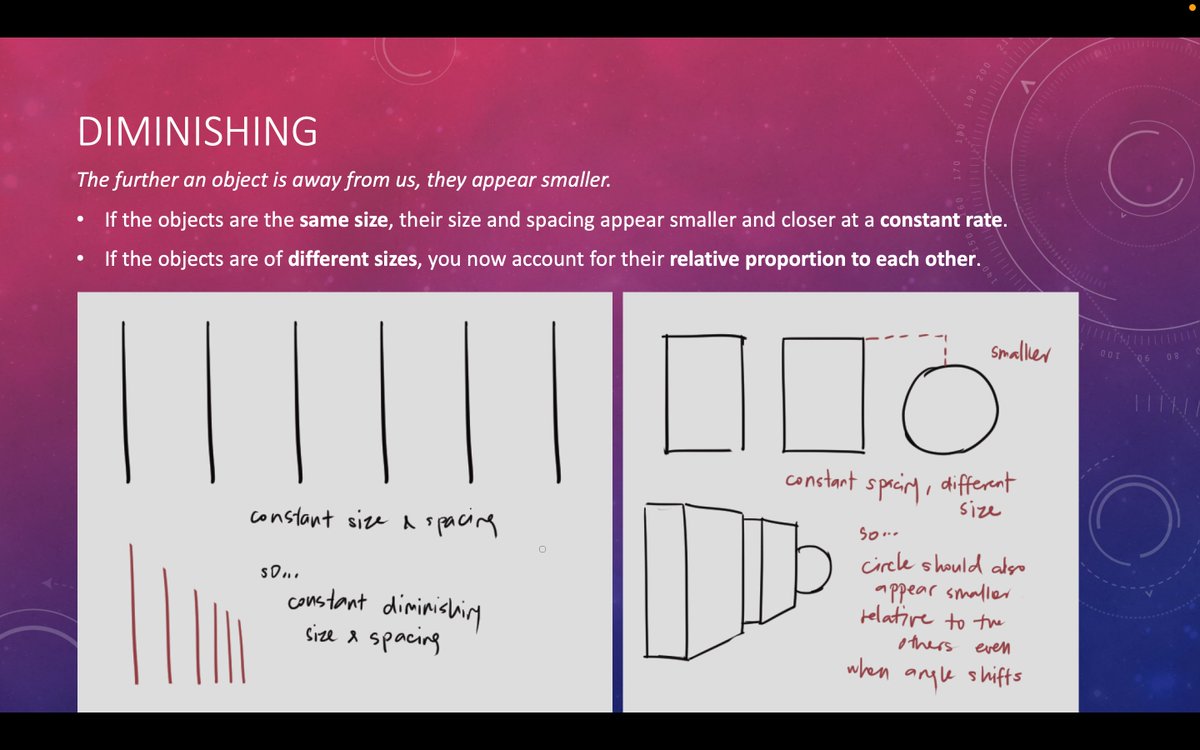 DIMINISHING
The further an object is away from us, they appear smaller.
• If the objects are the same size, their size and spacing appear smaller and closer at a constant rate.
• If the objects are of different sizes, you now account for their relative proportion to each other.
constant size & spacing
so...
constant diminishing
size & spacing
smaller
constant spacing, different
size
so...
circle should also
appear smaller
relative to the
others even
when angle shifts